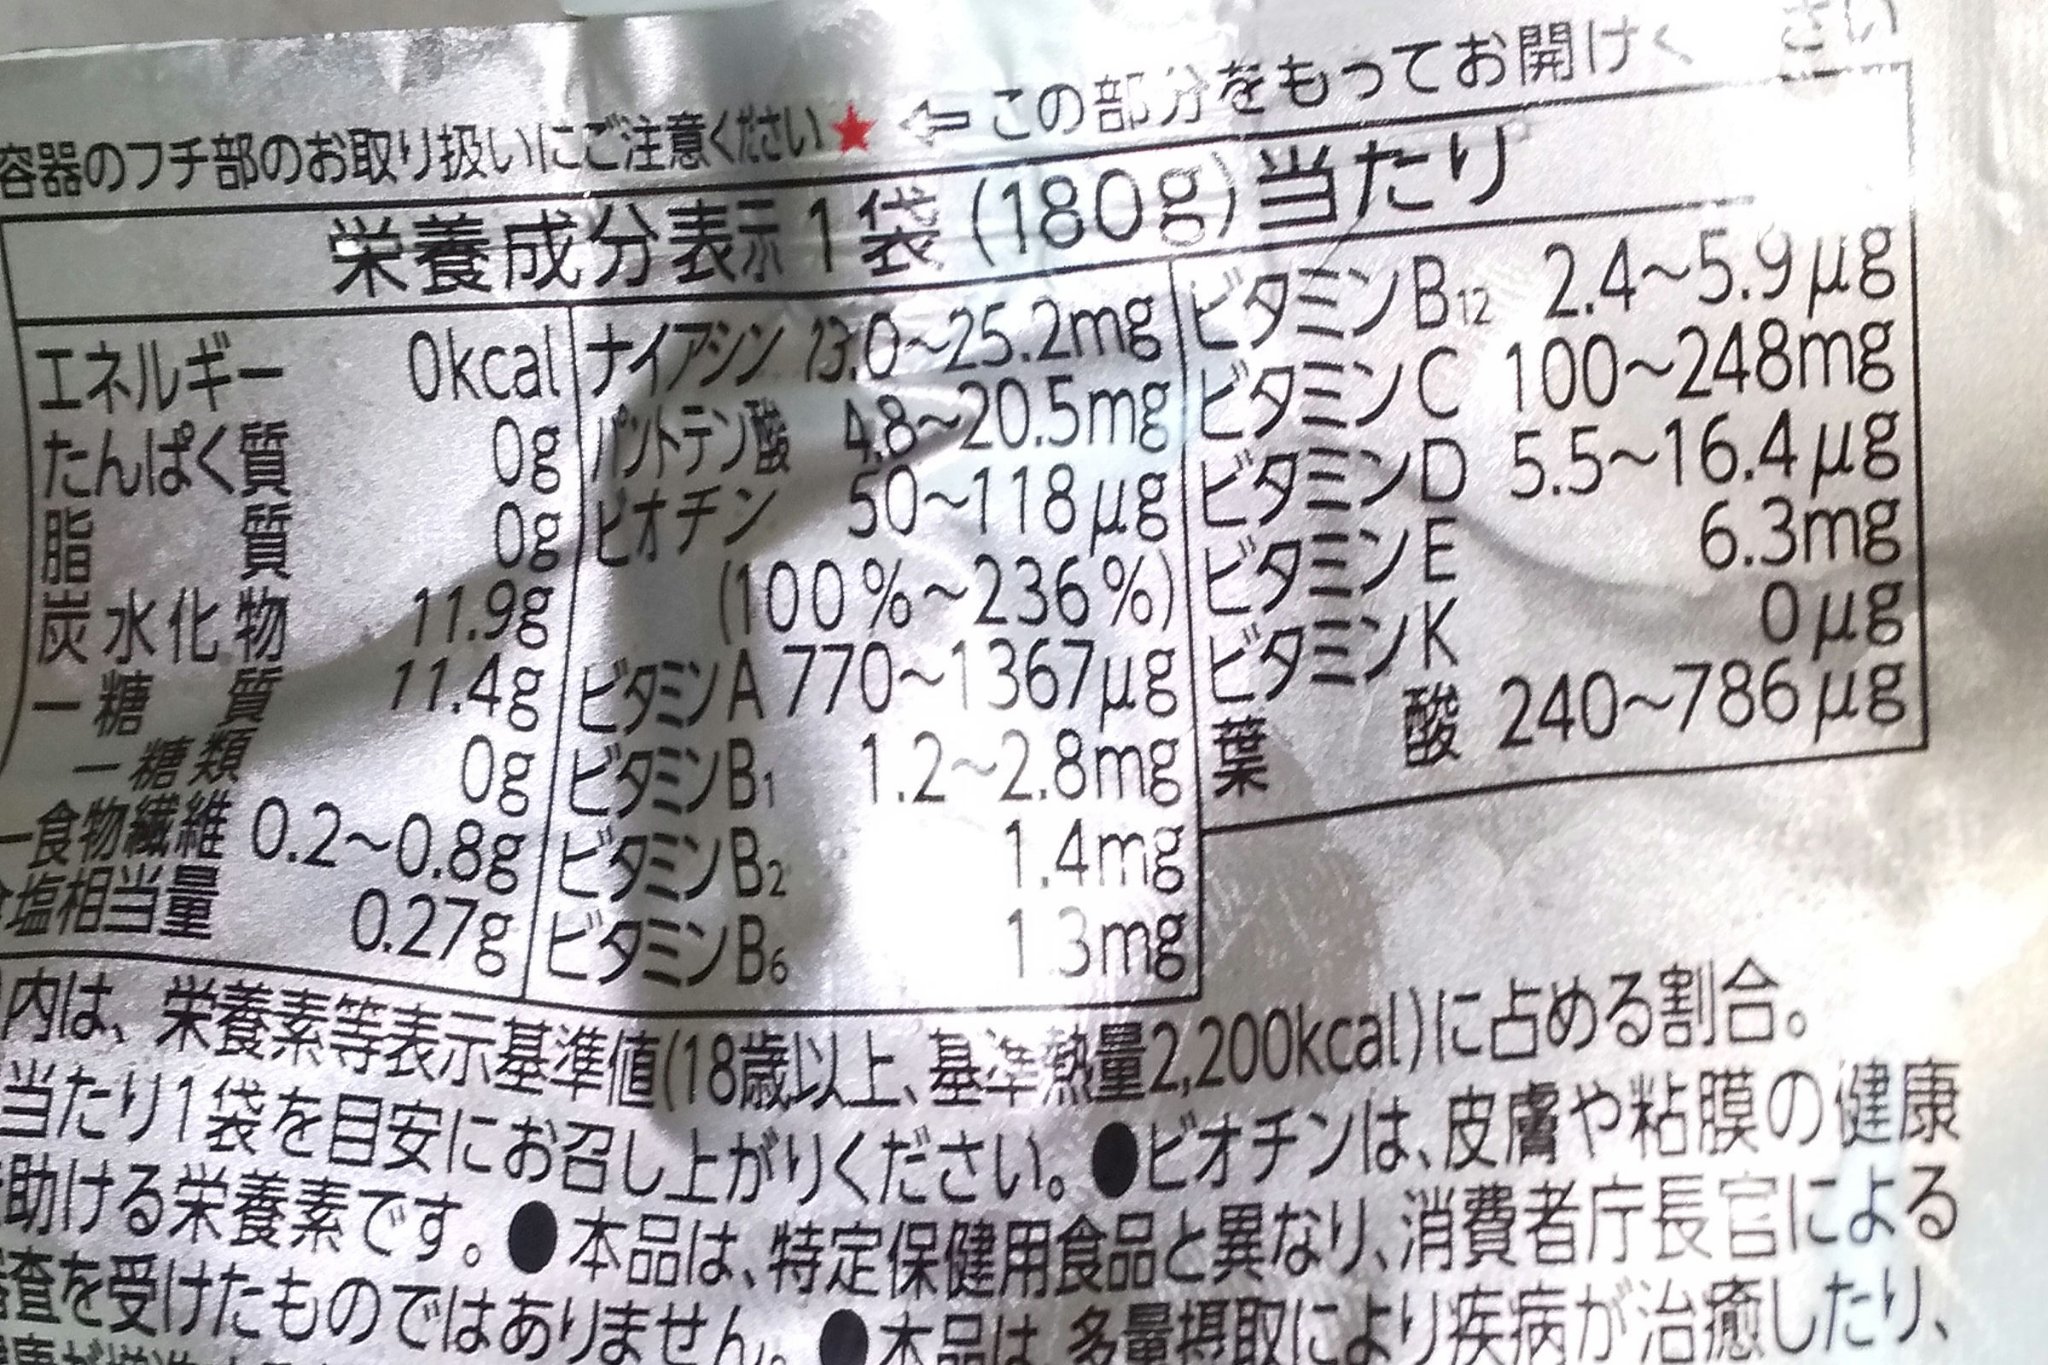 容器のフチ部のお取り扱いにご注意ください★ ⇦ この部分をもってお開けください
栄養成分表示 1袋(180g)当たり
エネルギー 0kcal
たんぱく質 0g
脂質 0g
炭水化物 11.9g
－糖質 11.4g
－糖類 0g
－食物繊維 0.2～0.8g
食塩相当量 0.27g
ナイアシン 13.0～25.2mg
パントテン酸 4.8～20.5mg
ビオチン 50～118μg
(100%～236%)
ビタミンA 770～1367μg
ビタミンB1 1.2～2.8mg
ビタミンB2 1.4mg
ビタミンB6 1.3mg
ビタミンB12 2.4～5.9μg
ビタミンC 100～248mg
ビタミンD 5.5～16.4μg
ビタミンE 6.3mg
ビタミンK 0μg
葉酸 240～786μg
内は、栄養素等表示基準値(18歳以上、基準熱量2,200kcal)に占める割合。
当たり1袋を目安にお召し上がりください。●ビオチンは、皮膚や粘膜の健康
助ける栄養素です。●本品は、特定保健用食品と異なり、消費者庁長官による
査を受けたものではありません。●本品は、多量摂取により疾病が治癒したり、